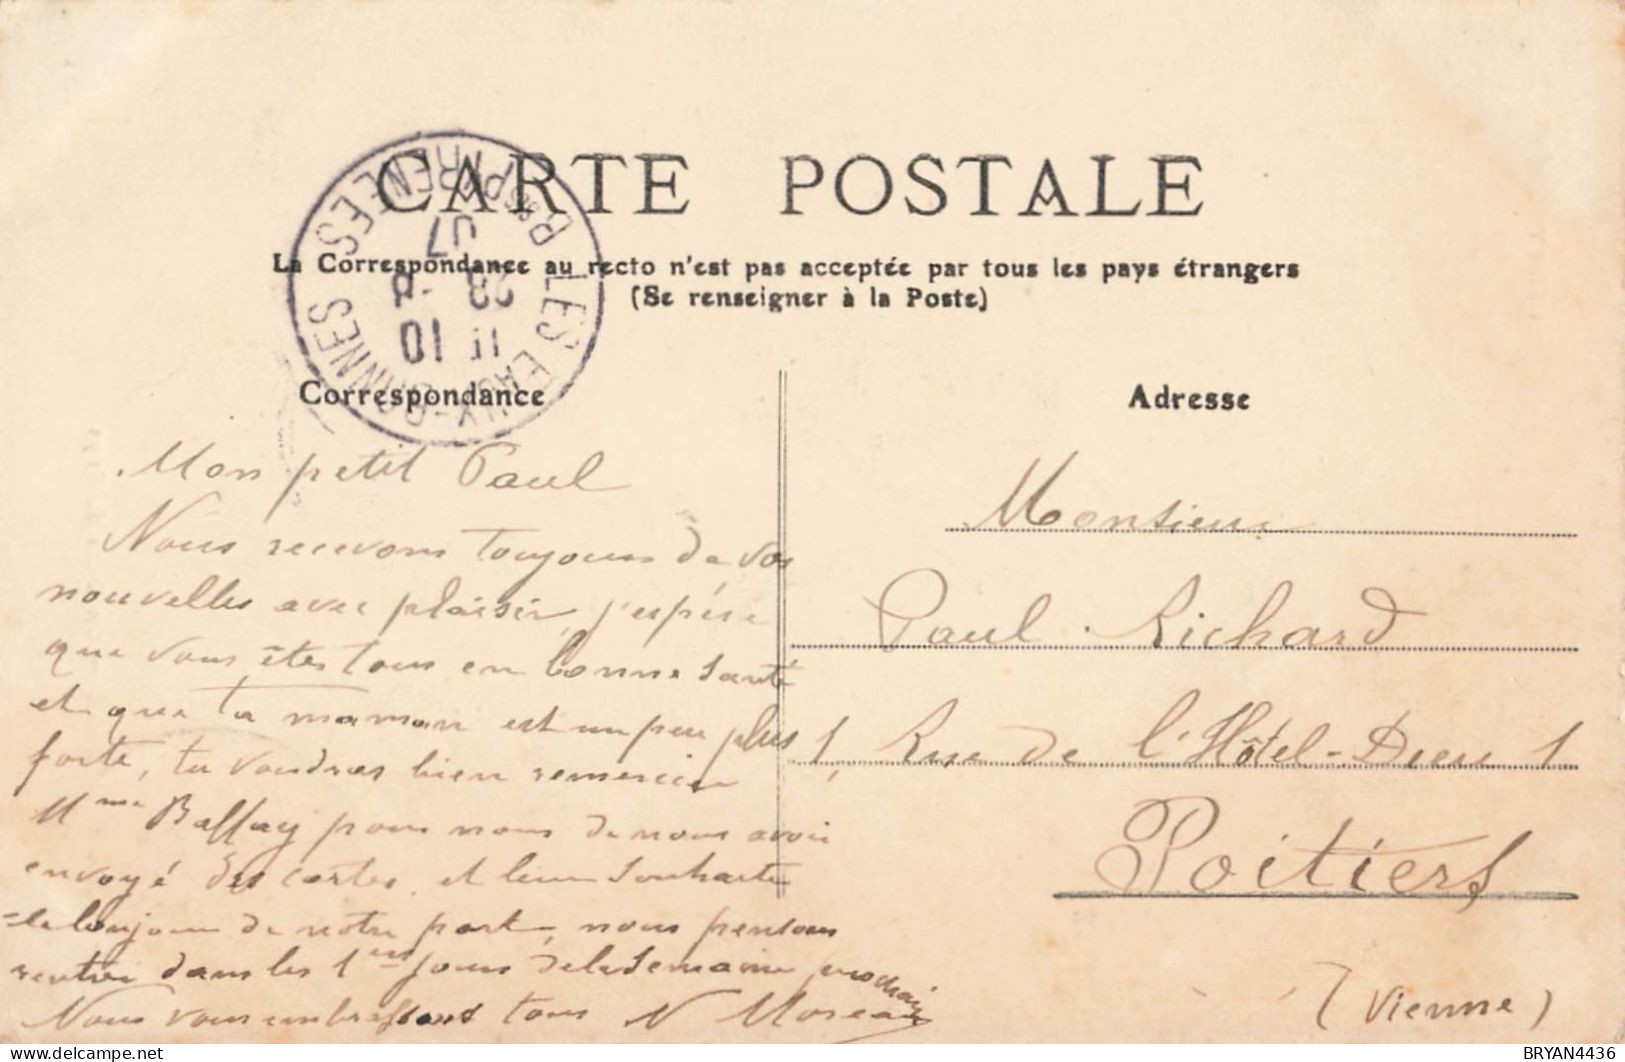 CARTE POSTALE
La Correspondance au recto n'est pas acceptée par tous les pays étrangers
(Se renseigner à la Poste)
LES EAUX-BONNES
Bses PYRÉNÉES
10
07
Correspondance
Mon petit Paul
Nous recevons toujours de vos
nouvelles avec plaisir, j'espère
que vous êtes tous en bonne santé
et que ta maman est un peu plus
forte, tu voudras bien remercier
Mme Baffay pour nous de nous avoir
envoyé des cartes, et leur souhaite
=le bonjour de notre part, nous pensons
rentrer dans les 1ers jours de la semaine prochaine
Nous vous embrassons tous N Moreau
Adresse
Monsieur
Paul Richard
1, Rue de l'Hôtel-Dieu 1
Poitiers
(Vienne)
delcampe.net
BRYAN4436